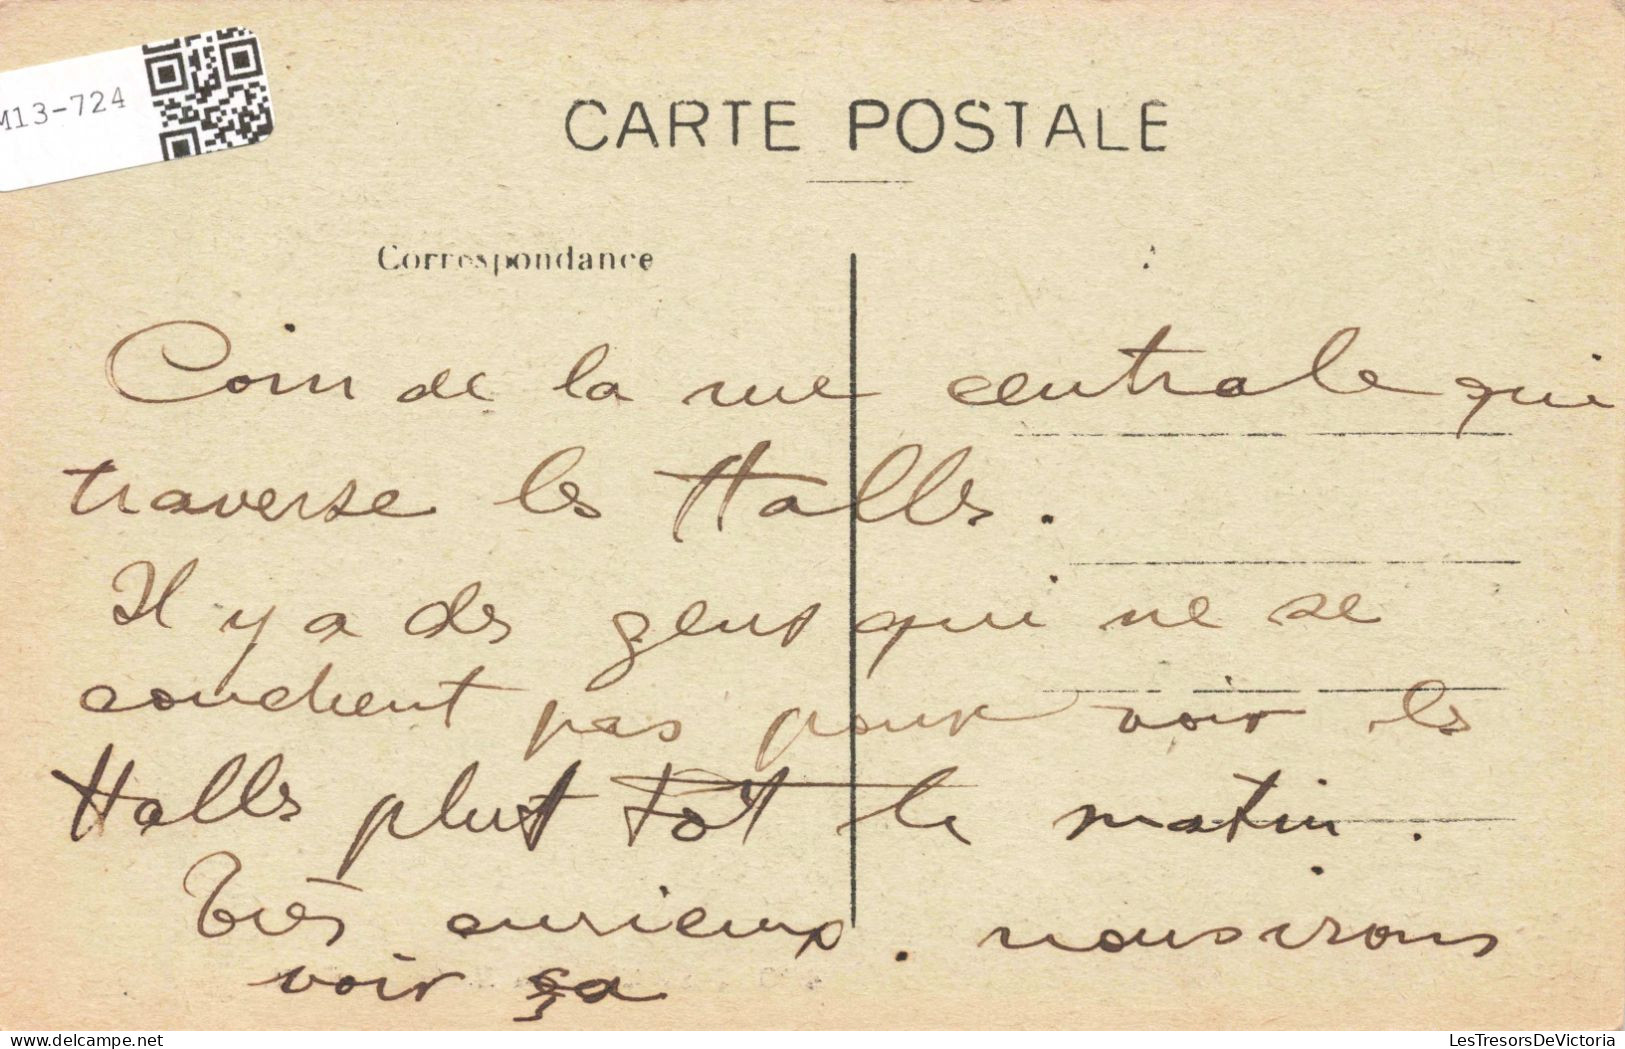 M13-724
CARTE POSTALE
Correspondance
Coin de la rue centrale qui
traverse les Halles.
Il y a des gens qui ne se
couchent pas pour voir les
Halles plut tot le matin.
Très curieux. nous irons
voir ça
delcampe.net
LesTresorsDeVictoria